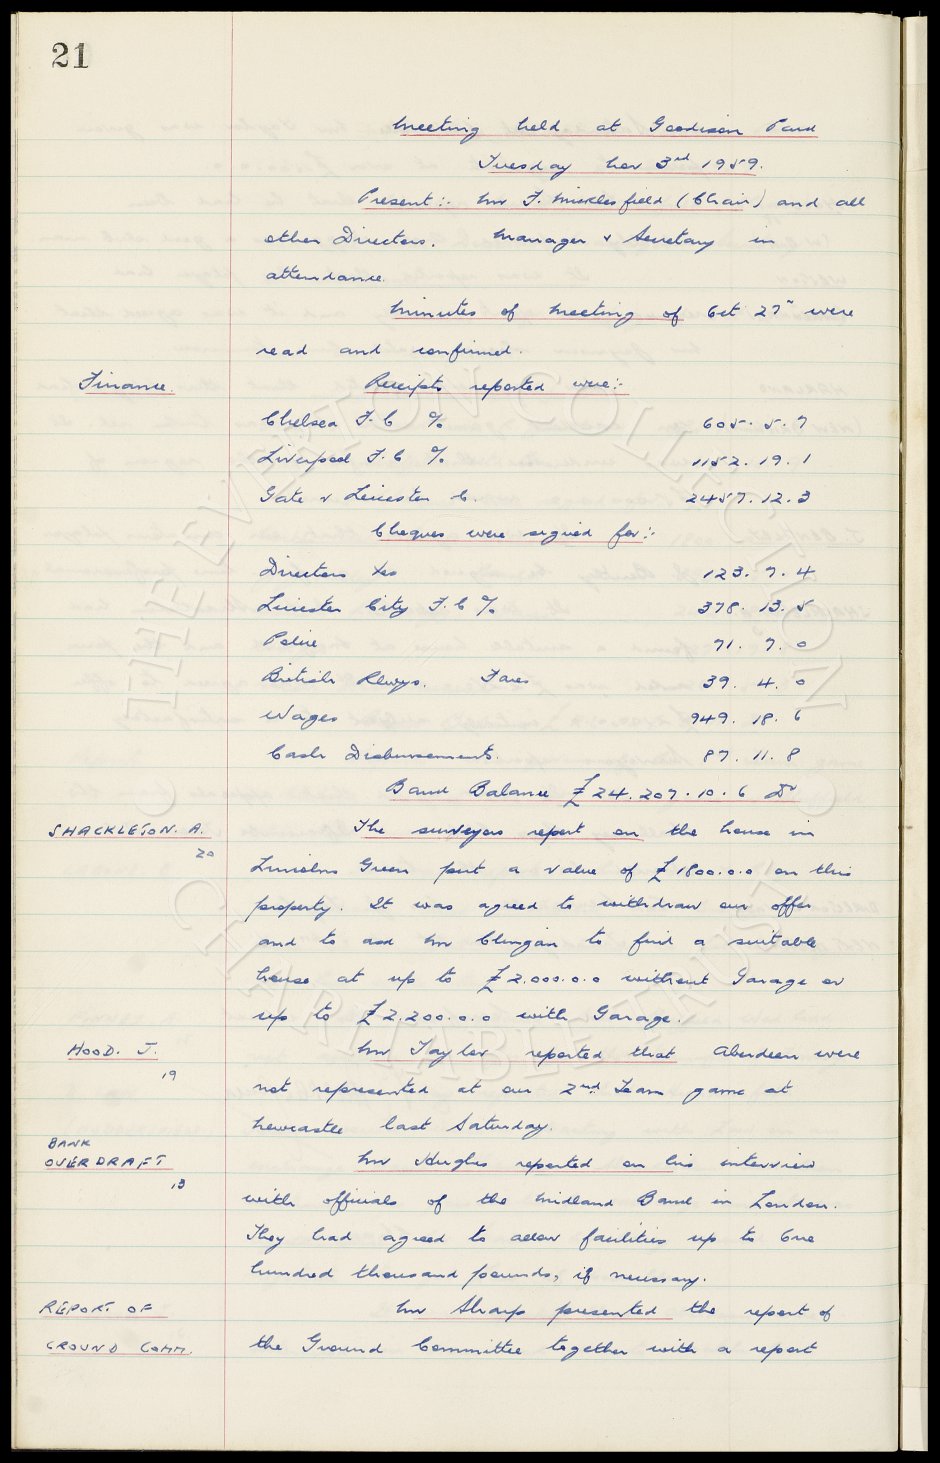 21
Meeting held at Goodison Park
Tuesday Nov 3rd 1959.
Present:- Mr F. Micklesfield (Chair) and all
other Directors. Manager & Secretary in
attendance.
Minutes of Meeting of Oct 27" were
read and confirmed.
Finance. Receipts reported were:-
Chelsea F.C % 605. 5. 7
Liverpool F.C % 1152. 19. 1
Gate v Leicester C. 2457. 12. 3
Cheques were signed for:-
Directors Exs 123. 7. 4
Leicester City F.C % 378. 13. 5
Police 71. 7. 0
British Rlwys. Fares 39. 4. 0
Wages 949. 18. 6
Cash Disbursements. 87. 11. 8
Bank Balance £24.207.10.6 Dr
SHACKLETON. A. The surveyors report on the house in
20
Lincolns Green put a value of £1800.0.0 on this
property. It was agreed to withdraw our offer
and to ask Mr Clingan to find a suitable
house at up to £2.000.0.0 without Garage or
up to £2.200.0.0 with Garage.
HOOD. J. Mr Taylor reported that Aberdeen were
19
not represented at our 2nd Team game at
Newcastle last Saturday.
BANK
OVERDRAFT Mr Hughes reported on his interview
13
with officials of the Midland Bank in London.
They had agreed to allow facilities up to One
hundred thousand pounds, if necessary.
REPORT OF Mr Sharp presented the report of
GROUND COMM. the Ground Committee together with a report
THE EVERTON COLLECTION
CHARITABLE TRUST